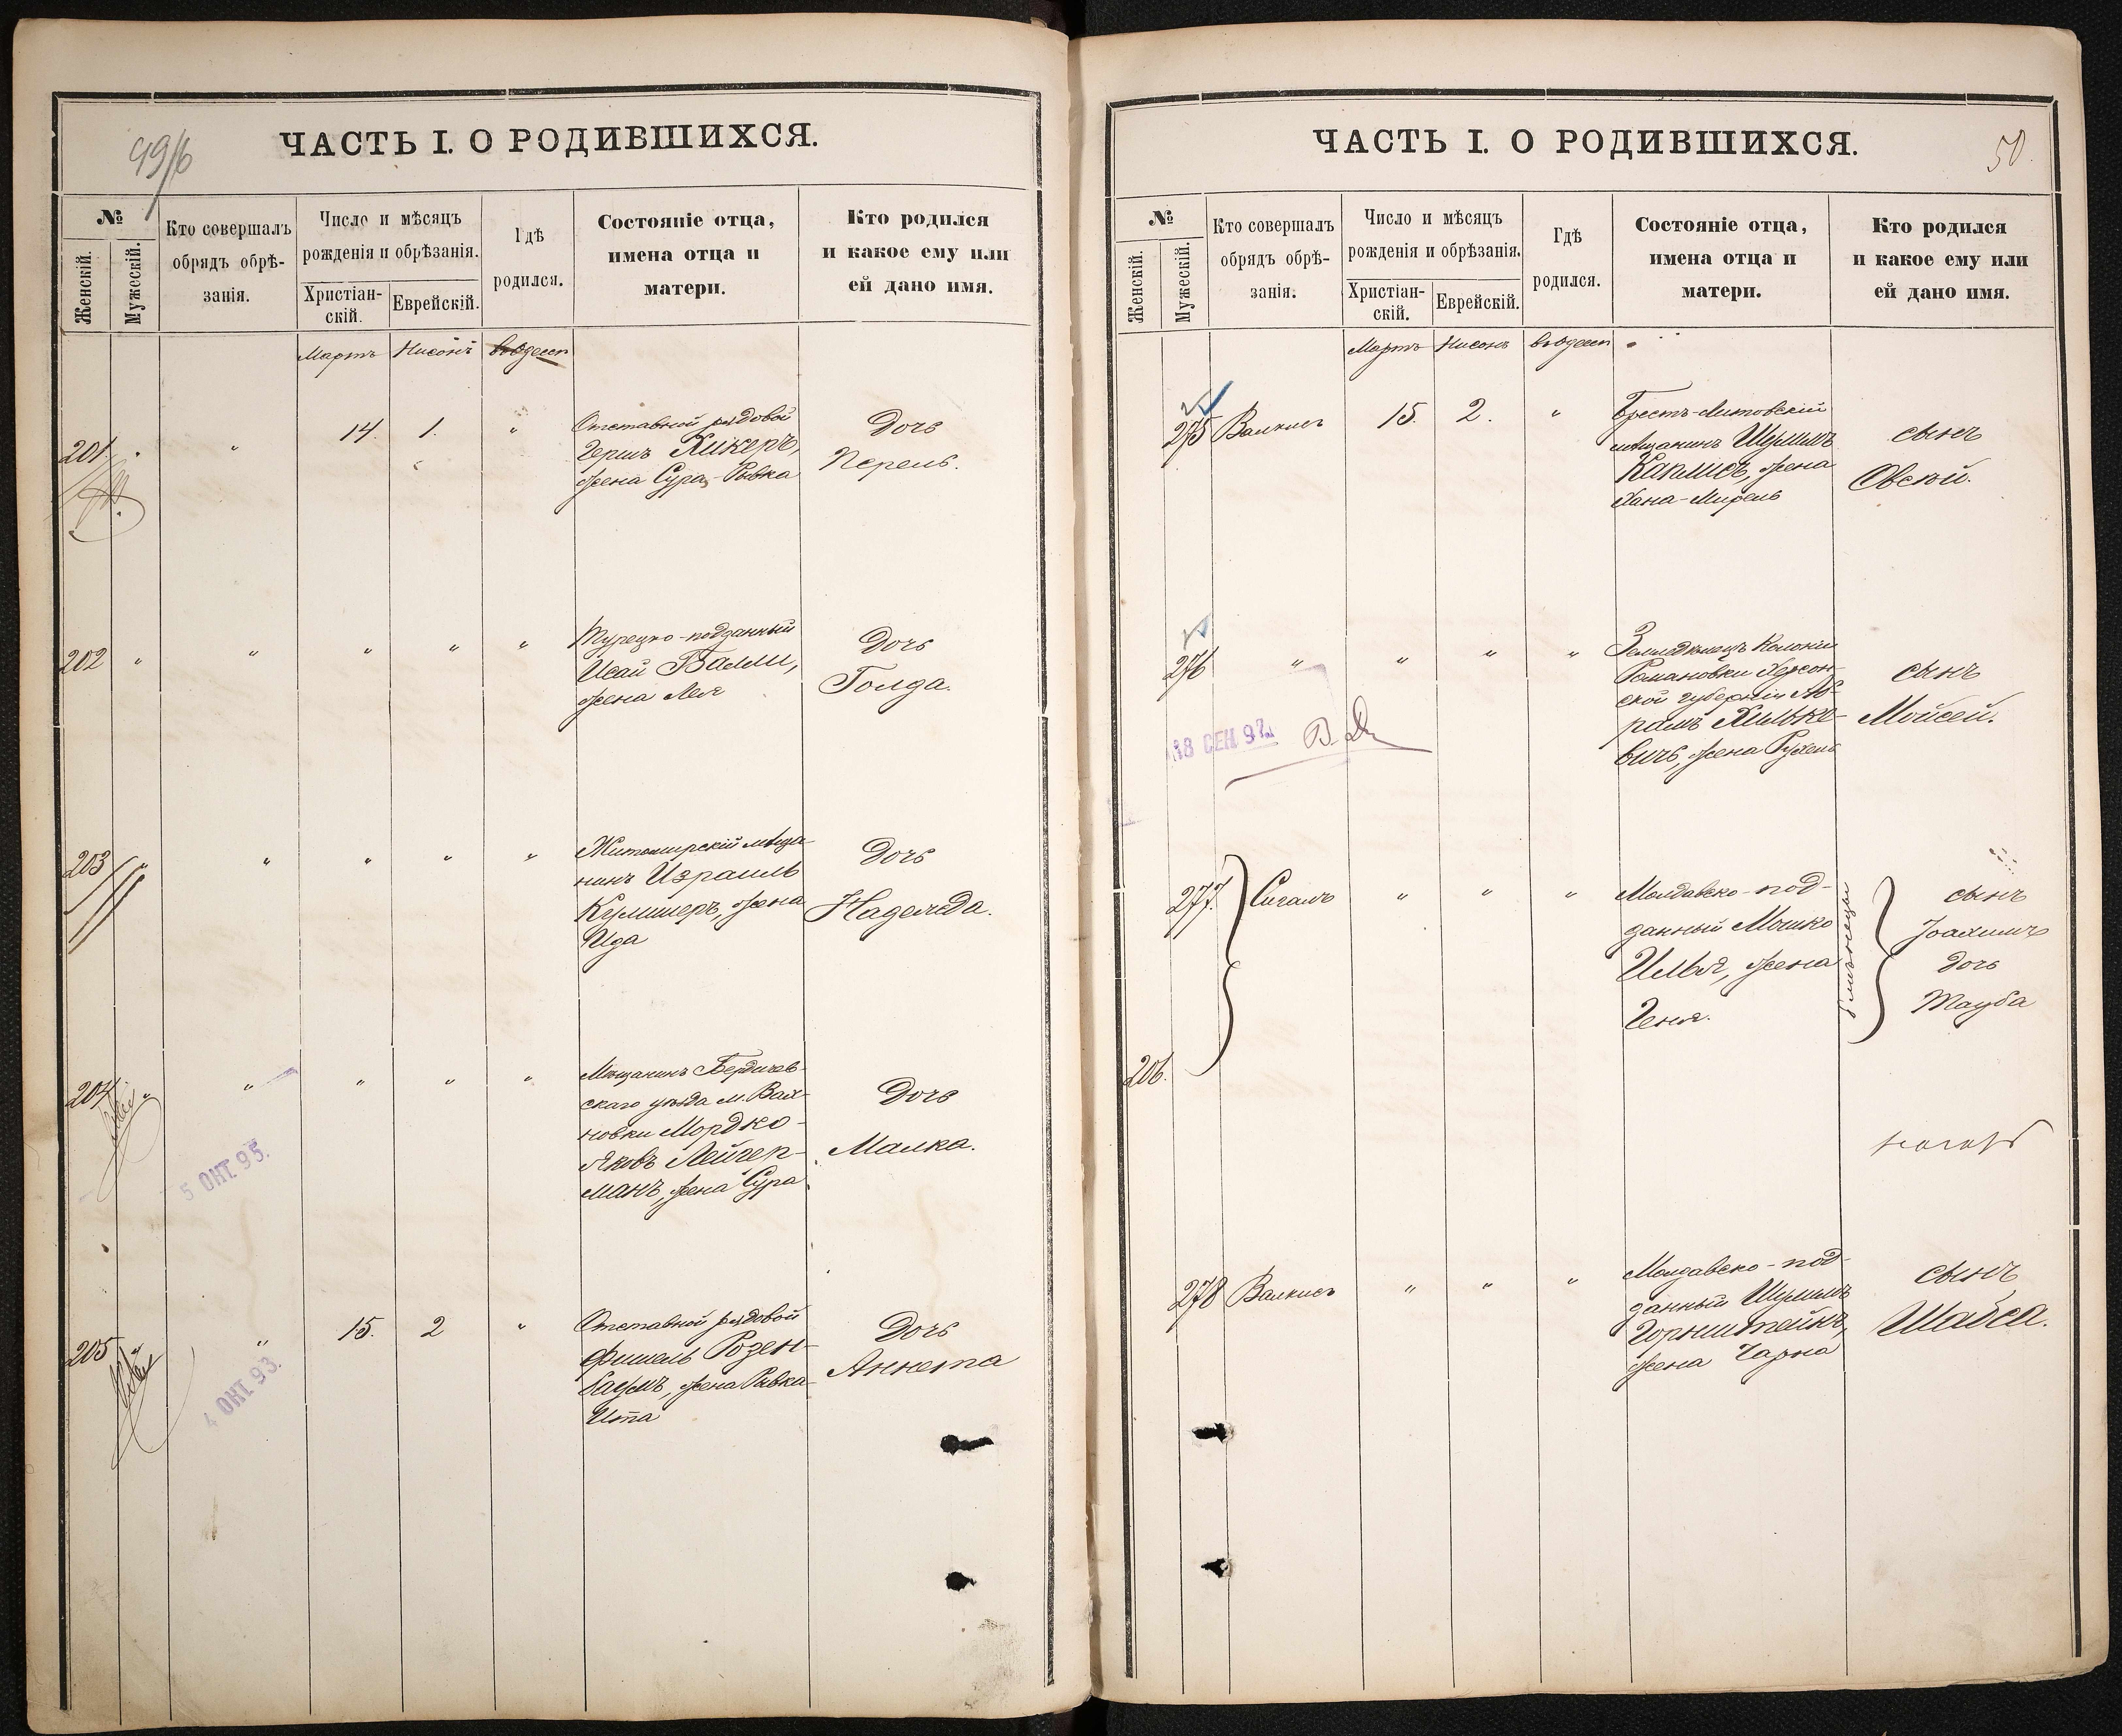 ЧАСТЬ I. О РОДИВШИХСЯ.
№
Женскій.
Мужескій.
Кто совершалъ
обрядъ обрѣ-
занія.
Число и мѣсяцъ
рожденія и обрѣзанія.
Христіан-
скій.
Еврейскій.
Гдѣ
родился.
Состояніе отца,
имена отца и
матери.
Кто родился
и какое ему или
ей дано имя.
Мартъ Нисонъ
201 " " 14. 1. "
Отставной рядовой
Гершъ Хикеръ,
жена Сура-Рывка
Дочь
Перель.
202 " " " " "
Турецко-подданный
Исай Балли,
жена Лея
Дочь
Голда.
203 " " " " "
Житомирскій мѣща-
нинъ Израиль
жена
Ида
Дочь
Надежда.
204 " " " " "
Мѣщанинъ Бердичев-
скаго уѣзда м. Вах-
новки Мордко-
Яковъ Лейчер-
манъ, жена Сура
Дочь
Малка.
5 ОКТ. 95.
205 " " 15. 2 "
Отставной рядовой
Фишель Розен-
баумъ, жена Рывка-
Ита
Дочь
Аннета
4 ОКТ. 93.
ЧАСТЬ I. О РОДИВШИХСЯ.
50.
№
Женскій.
Мужескій.
Кто совершалъ
обрядъ обрѣ-
занія.
Число и мѣсяцъ
рожденія и обрѣзанія.
Христіан-
скій.
Еврейскій.
Гдѣ
родился.
Состояніе отца,
имена отца и
матери.
Кто родился
и какое ему или
ей дано имя.
Мартъ Нисонъ
275 Валкисъ 15. 2. "
Брестъ-Литовскій
мѣщанинъ Шулимъ
жена
Хана-Мирель
сынъ
Овсѣй.
276 " " " "
Земледѣлецъ Колоніи
Романовки Херсон-
ской губерніи Аб-
рамъ Хилько-
вичъ, жена Рухель
сынъ
Мойсей.
18 СЕН. 92
277. Сигалъ " " "
Молдавско-под-
данный Мошко
Илья, жена
Геня.
близнецы
сынъ
Іоахимъ
дочь
Тауба
206.
278 Валкисъ " " "
Молдавско-под-
данный Шулимъ
Горнштейнъ,
жена Чарна
сынъ
Шабса.